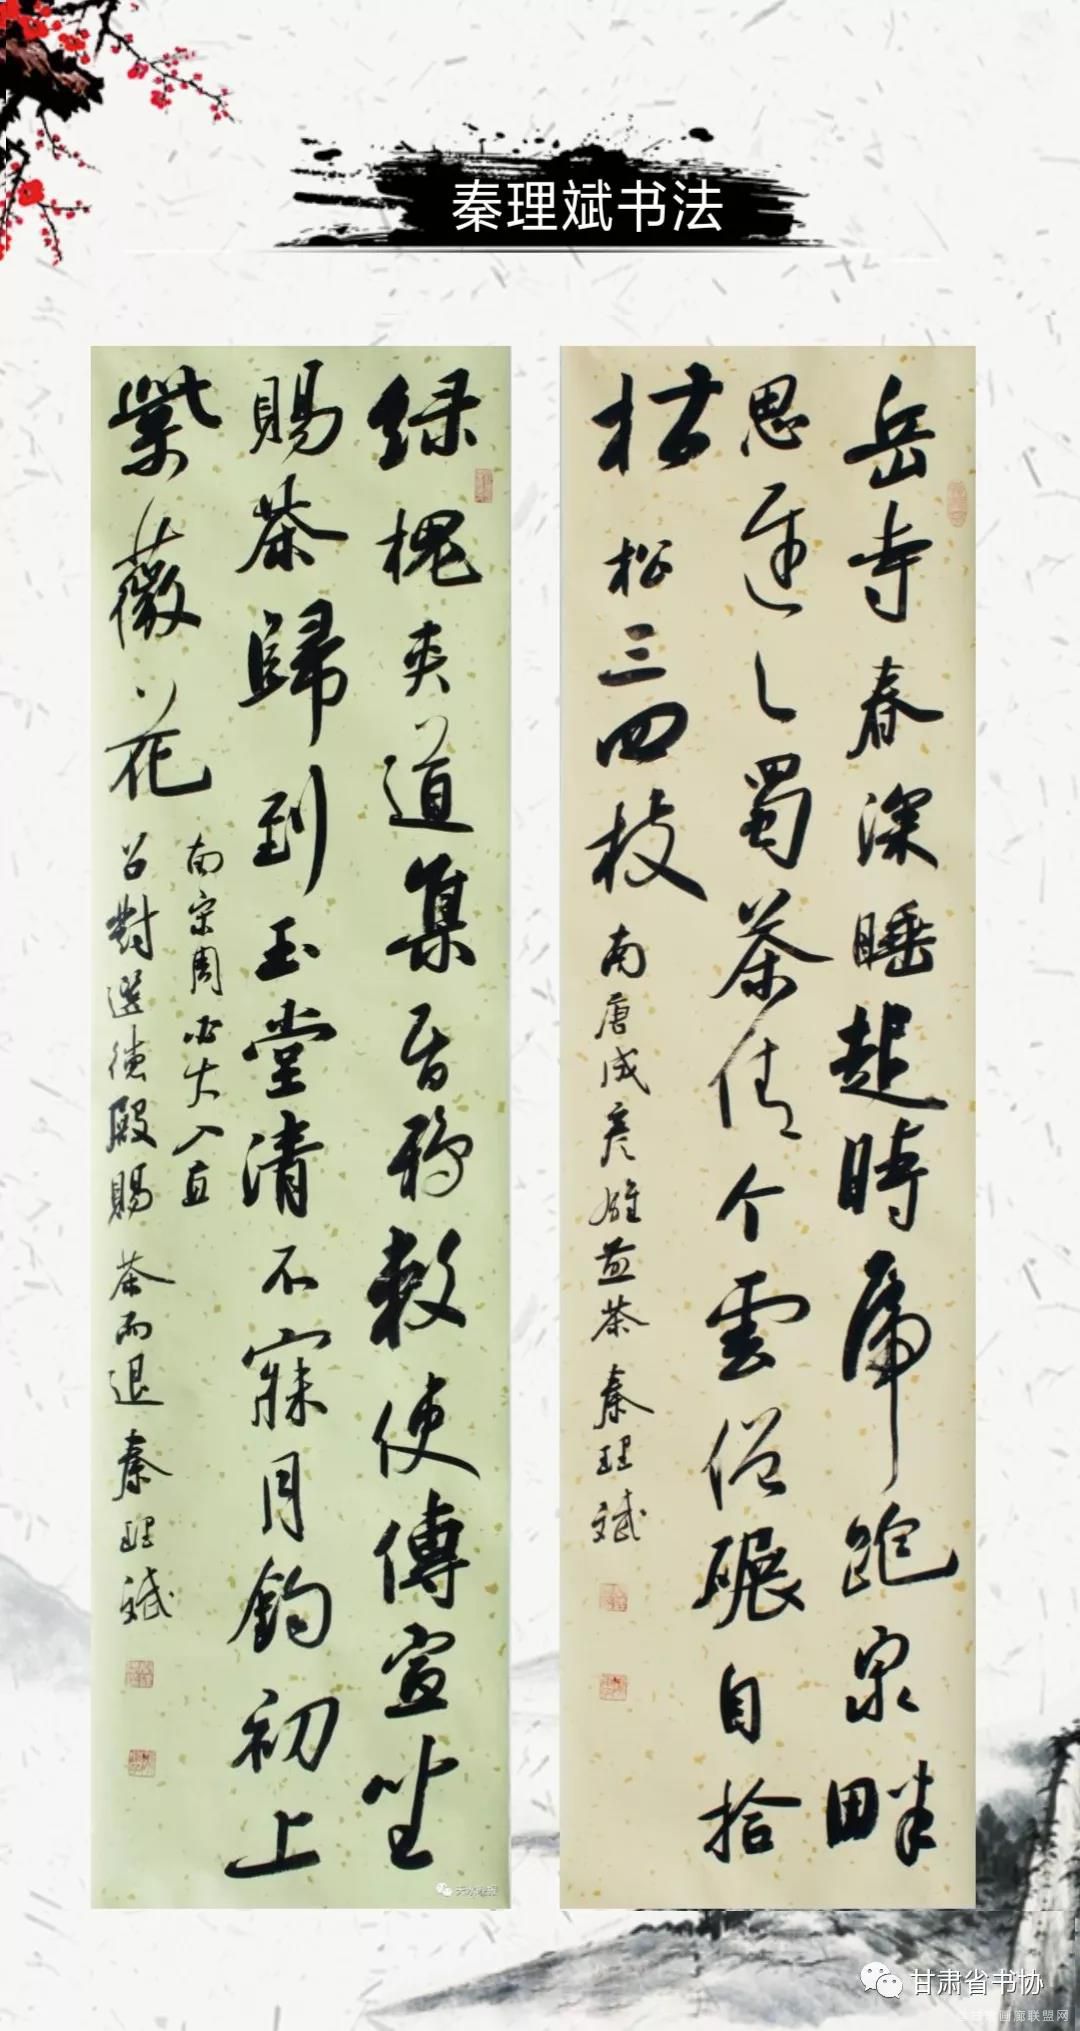 秦理斌书法
岳寺春深睡起時虎跑泉畔
思遲〻蜀茶倩个雲僧碾自拾
枯松三四枝
南唐成彦雄煎茶 秦理斌
绿槐夹道集昏鸦敕使傳宣坐
賜茶歸到玉堂清不寐月鈎初上
紫薇花
南宋周必大入直
召對選德殿賜茶而退 秦理斌
天水晚报
甘肃省书协
画廊联盟网